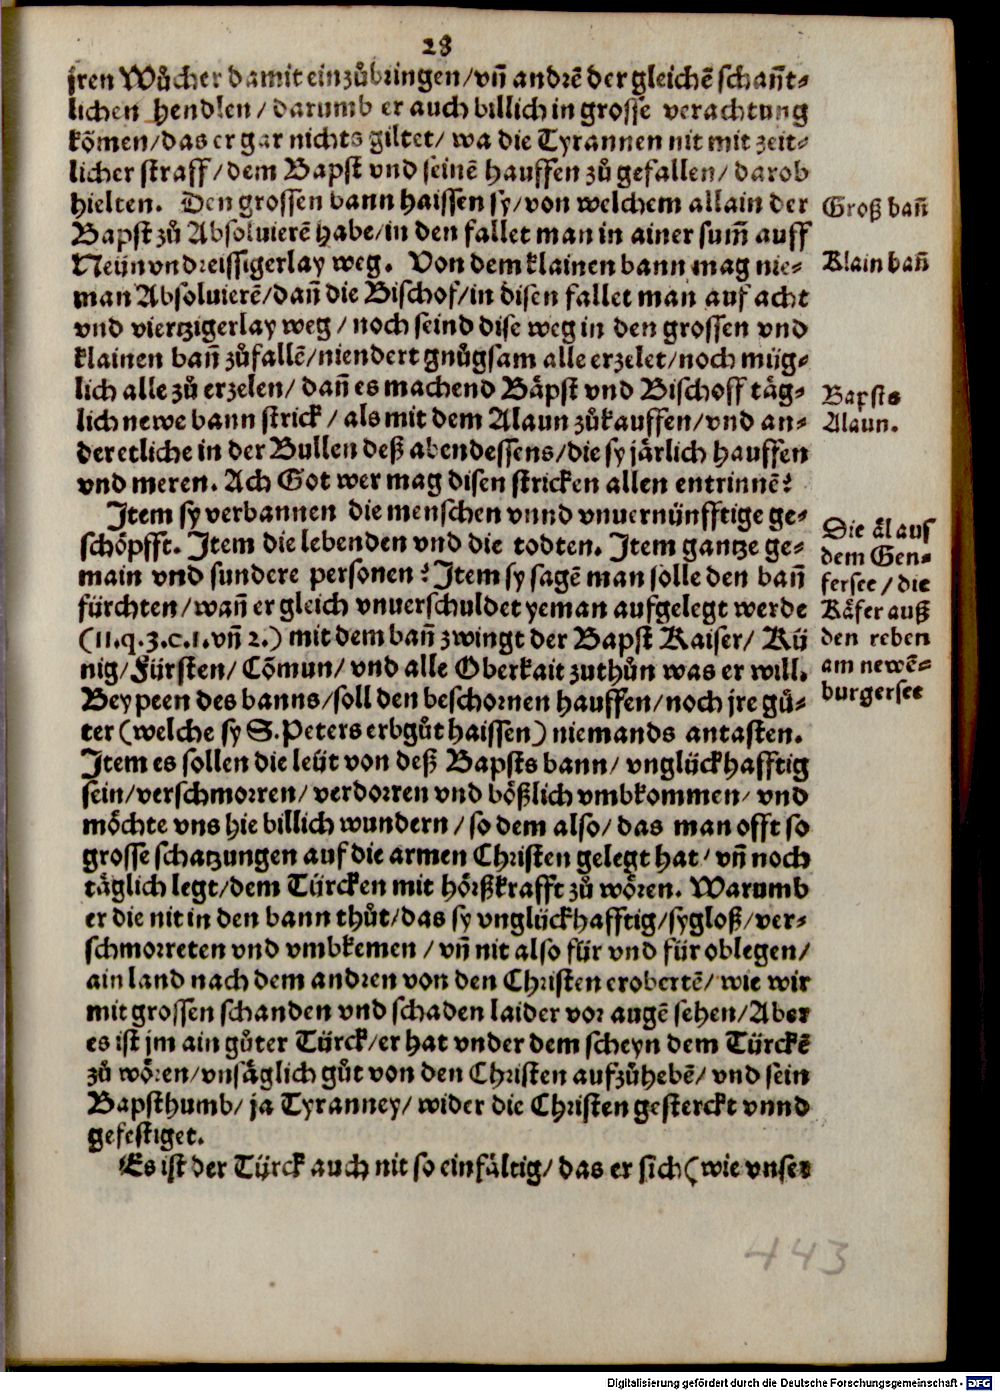 28
jren Wůcher damit einzůbringen/vñ andrē der gleichē schañt⸗
lichen hendlen/darumb er auch billich in grosse verachtung
kõmen/das er gar nichts giltet/wa die Tyrannen nit mit zeit⸗
licher straff/dem Bapst vnd seinē hauffen zů gefallen/darob
hielten. Den grossen bann haissen sy/von welchem allain der
Groß bañ
Bapst zů Absoluierē habe/in den fallet man in ainer sum̃ auff
Neün vnd reissigerlay weg. Von dem klainen bann mag nie⸗
Klain bañ
man Absoluierē/dañ die Bischof/in disen fallet man auf acht
vnd viertzigerlay weg/noch seind dise weg in den grossen vnd
klainen bañ zůfallē/niendert gnůgsam alle erzelet/noch müg⸗
lich alle zů erzelen/dañ es machend Bäpst vnd Bischoff täg⸗
Bapsts
lich newe bann strick/als mit dem Alaun zůkauffen/vnd an⸗
Alaun.
der etliche in der Bullen deß abendessens/die sy järlich hauffen
vnd meren. Ach Got wer mag disen stricken allen entrinnē?
Item sy verbannen die menschen vnnd vnuernünfftige ge⸗
Die äl aus
schöpfft. Item die lebenden vnd die todten. Item gantze ge⸗
dem Gen⸗
main vnd sundere personen? Item sy sagē man solle den bañ
fersee/die
fürchten/wañ er gleich vnuerschuldet yeman aufgelegt werde
Käfer auß
(11.q.3.c.1.vñ 2.) mit dem bañ zwingt der Bapst Kaiser/Kü
den reben
nig/Fürsten/Cõmun/vnd alle Oberkait zuthůn was er will.
am newē⸗
Bey peen des banns/soll den beschornen hauffen/noch jre gü⸗
burgersee
ter (welche sy S. Peters erbgůt haissen) niemands antasten.
Item es sollen die leüt von deß Bapsts bann/vnglückhafftig
sein/verschmorren/verdorren vnd bößlich vmbkommen/vnd
möchte vns hie billich wundern/so dem also/das man offt so
grosse schatzungen auf die armen Christen gelegt hat/vñ noch
täglich legt/dem Türcken mit hörßkrafft zů wören. Warumb
er die nit in den bann thůt/das sy vnglückhafftig/sygloß/ver⸗
schmorreten vnd vmbkemen/vñ nit also für vnd für oblegen/
ain land nach dem andren von den Christen erobertē/wie wir
mit grossen schanden vnd schaden laider vor augē sehen/Aber
es ist jm ain gůter Türck/er hat vnder dem scheyn dem Türckē
zů wören/vnsäglich gůt von den Christen aufzůhebē/vnd sein
Bapsthumb/ja Tyranney/wider die Christen gesterckt vnnd
gefestiget.
Es ist der Türck auch nit so einfältig/das er sich (wie vnser
443
Digitalisierung gefördert durch die Deutsche Forschungsgemeinschaft - DFG